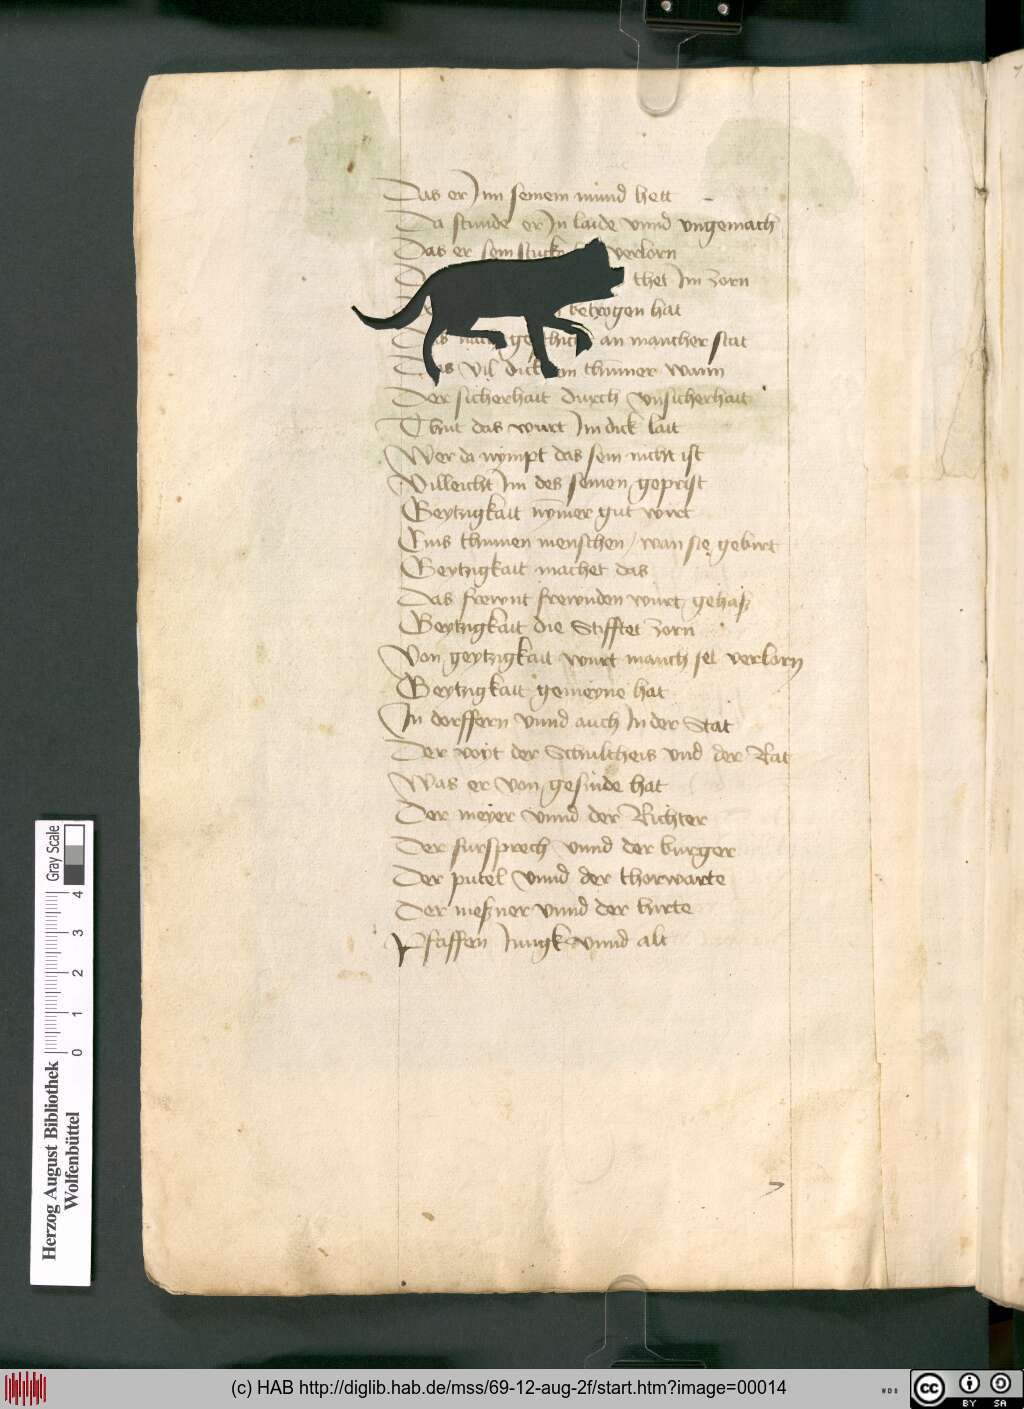 Das er Im seinem mund hett
Da stunde er In laide vnnd vngemach
Das er sein stuck verlorn
thet Im zorn
betrogen hat
Das nach geschicht an mancher stat
Das vil dick ein thummer wann
Der sicherhait durch vnsicherhait
Thut das wurt Im dick lait
Wer da nympt das sein nicht ist
Villeicht Im des seinen geprist
Geytzigkait nymer gut wirt
Eins thumen menschen / wan sie gebirt
Geytzigkait machet das
Das frewnt frewnden wurt gehasz
Geytzigkait die Stifftet zorn
Von geytzigkait wurt manch sel verlorn
Geytzigkait gemeyne hat
In dorffern vnnd auch In der Stat
Der voyt der Schultheis vnd der Rat
Was er von gesinde hat
Der meyer vnnd der Richter
Der fursprech vnnd der burger
Der putel vnnd der thorwarte
Der meszner vnnd der hirte
Pfaffen Jungk vnnd alt
Gray Scale
0 1 2 3 4
Herzog August Bibliothek
Wolfenbüttel
(c) HAB http://diglib.hab.de/mss/69-12-aug-2f/start.htm?image=00014
WDB
cc
BY SA